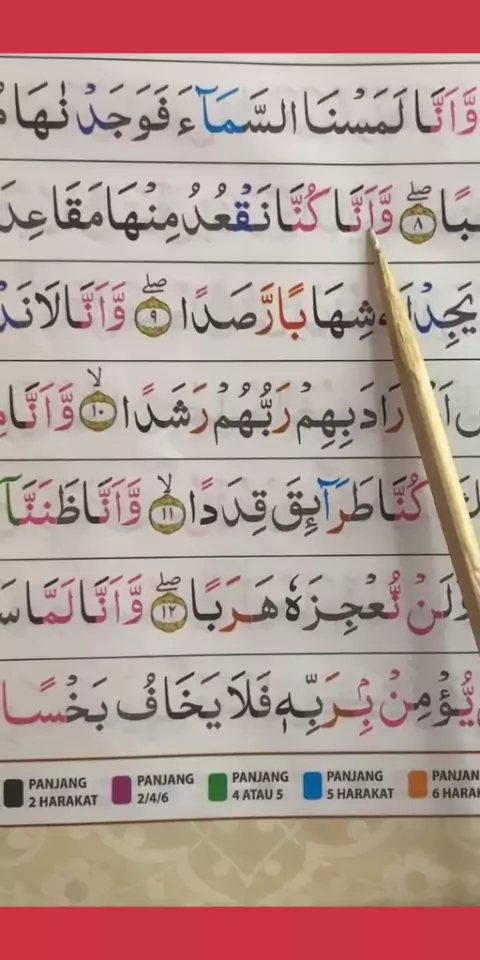 وَّاَنَّا لَمَسْنَا السَّمَآءَ فَوَجَدْنٰهَا
وَّاَنَّا كُنَّا نَقْعُدُ مِنْهَا مَقَاعِدَ ۖ ٨
شِهَابًا رَّصَدًا ۖ ٩ وَّاَنَّا لَا
رَبُّهُمْ رَشَدًا ۙ ١٠ وَّاَنَّا
كُنَّا طَرَآئِقَ قِدَدًا ۙ ١١ وَّاَنَّا ظَنَنَّآ
نُّعْجِزَهٗ هَرَبًا ۖ ١٢ وَّاَنَّا لَمَّا
يُّؤْمِنْۢ بِرَبِّهٖ فَلَا يَخَافُ بَخْسًا
PANJANG 2 HARAKAT
PANJANG 2/4/6
PANJANG 4 ATAU 5
PANJANG 5 HARAKAT